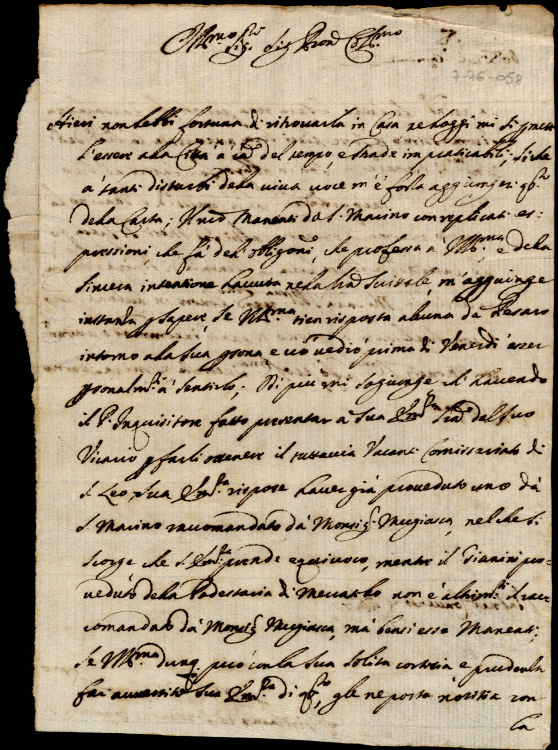 Ill.mo Sig.r Sig.r Pron Col.mo
7-76-058
Hieri non hebbi fortuna di ritrovarla in Casa ne hoggi mi si
l'essere alla Città à del tempo, e strade impraticabili; si che
à tanti disturbi della viva voce m'è forza aggiunger q.to
della Carta; Il Manenti da S. Marino con replicati es-
pressioni, che fà dell'obligo.ni, che professa à V.S. Ill.ma e della
sincera intentione havuta nela m'aggiunge
instanza p sapere, se V.S. Ill.ma tien risposta alcuna da Pesaro
intorno ala sua p.sona, e vedrò prima di Venerdì esser
p.sonalm.te à sentirlo; Di più mi sogiunge che havendo
il P. Inquisitore fatto presentar a Sua Em.za del suo
Vicario p farli ottenere il tuttavia Vacante Comissariato di
S. Leo, Sua Em.za rispose haver già proveduto uno da
S. Marino racomandato da Monsig.r Mugiasca, nel che si
scorge che S. Em.za prende equivoco, mentre il Gianini pro-
veduto della Podestaria di Mercatello non è altrim.ti il rac-
comandato da Monsig.r Mugiasca, mà bensì esso Manenti;
Se V.S. Ill.ma dunq. può con la sua solita cortesia e prudenza
far avvertita Sua Em.za di q.to, gle ne porto notitia con
la